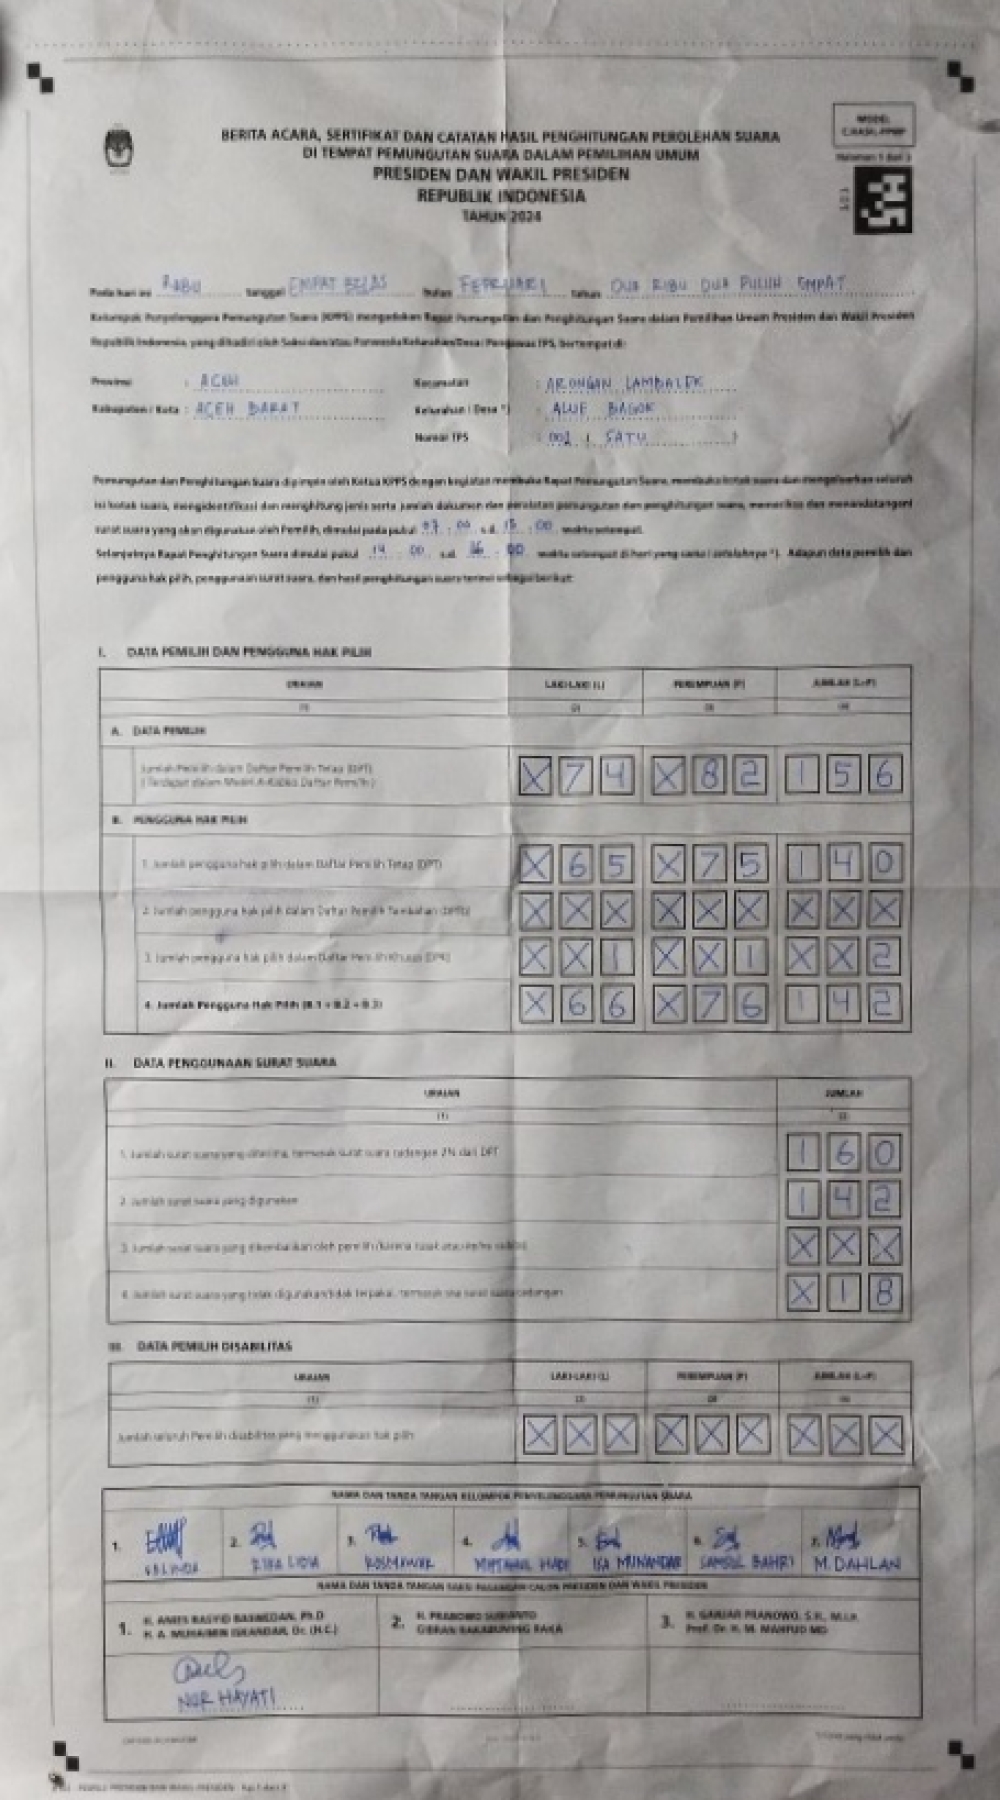 MODEL
C.HASIL-PPWP
BERITA ACARA, SERTIFIKAT DAN CATATAN HASIL PENGHITUNGAN PEROLEHAN SUARA
DI TEMPAT PEMUNGUTAN SUARA DALAM PEMILIHAN UMUM
PRESIDEN DAN WAKIL PRESIDEN
REPUBLIK INDONESIA
TAHUN 2024
Halaman 1 dari 3
101
Pada hari ini RABU tanggal EMPAT BELAS bulan FEBRUARI tahun DUA RIBU DUA PULUH EMPAT
Kelompok Penyelenggara Pemungutan Suara (KPPS) mengadakan Rapat Pemungutan dan Penghitungan Suara dalam Pemilihan Umum Presiden dan Wakil Presiden
Republik Indonesia, yang dihadiri oleh Saksi dan/atau Panwaslu Kelurahan/Desa/Pengawas TPS, bertempat di:
Provinsi : ACEH Kecamatan : ARONGAN LAMBALEK
Kabupaten / Kota : ACEH BARAT Kelurahan / Desa *) : ALUE BAGOK
Nomor TPS : 001 ( SATU )
Pemungutan dan Penghitungan Suara dipimpin oleh Ketua KPPS dengan kegiatan membuka Rapat Pemungutan Suara, membuka kotak suara dan mengeluarkan seluruh
isi kotak suara, mengidentifikasi dan menghitung jenis serta jumlah dokumen dan peralatan pemungutan dan penghitungan suara, memeriksa dan menandatangani
surat suara yang akan digunakan oleh Pemilih, dimulai pada pukul 07 : 00 s.d. 13 : 00 waktu setempat.
Selanjutnya Rapat Penghitungan Suara dimulai pukul 14 : 00 s.d. 16 : 00 waktu setempat di hari yang sama / setelahnya *). Adapun data pemilih dan
pengguna hak pilih, penggunaan surat suara, dan hasil penghitungan suara terinci sebagai berikut:
I. DATA PEMILIH DAN PENGGUNA HAK PILIH
URAIAN LAKI-LAKI (L) PEREMPUAN (P) JUMLAH (L+P)
(1) (2) (3) (4)
A. DATA PEMILIH
Jumlah Pemilih dalam Daftar Pemilih Tetap (DPT) X 7 4 X 8 2 1 5 6
B. PENGGUNA HAK PILIH
1. Jumlah pengguna hak pilih dalam Daftar Pemilih Tetap (DPT) X 6 5 X 7 5 1 4 0
2. Jumlah pengguna hak pilih dalam Daftar Pemilih Tambahan (DPTb) X X X X X X X X X
3. Jumlah pengguna hak pilih dalam Daftar Pemilih Khusus (DPK) X X 1 X X 1 X X 2
4. Jumlah Pengguna Hak Pilih (B.1 + B.2 + B.3) X 6 6 X 7 6 1 4 2
II. DATA PENGGUNAAN SURAT SUARA
URAIAN JUMLAH
(1) (2)
1. Jumlah surat suara yang diterima, termasuk surat suara cadangan 2% dari DPT 1 6 0
2. Jumlah surat suara yang digunakan 1 4 2
3. Jumlah surat suara yang dikembalikan oleh pemilih karena rusak atau keliru coblos X X X
4. Jumlah surat suara yang tidak digunakan/tidak terpakai, termasuk sisa surat suara cadangan X 1 8
III. DATA PEMILIH DISABILITAS
URAIAN LAKI-LAKI (L) PEREMPUAN (P) JUMLAH (L+P)
(1) (2) (3) (4)
Jumlah seluruh Pemilih disabilitas yang menggunakan hak pilih X X X X X X X X X
NAMA DAN TANDA TANGAN KELOMPOK PENYELENGGARA PEMUNGUTAN SUARA
1. 2. 3. 4. 5. 6. 7.
RIKA LIDIA KOSMAWAR MIFTAHUL HADI ISA MUNANDAR SAMSUL BAHRI M. DAHLAN
NAMA DAN TANDA TANGAN SAKSI PASANGAN CALON PRESIDEN DAN WAKIL PRESIDEN
1. H. ANIES RASYID BASWEDAN, Ph.D 2. H. PRABOWO SUBIANTO 3. H. GANJAR PRANOWO, S.H., M.I.P.
H. A. MUHAIMIN ISKANDAR, Dr. (H.C.) GIBRAN RAKABUMING RAKA Prof. Dr. H. M. MAHFUD MD
NUR HAYATI